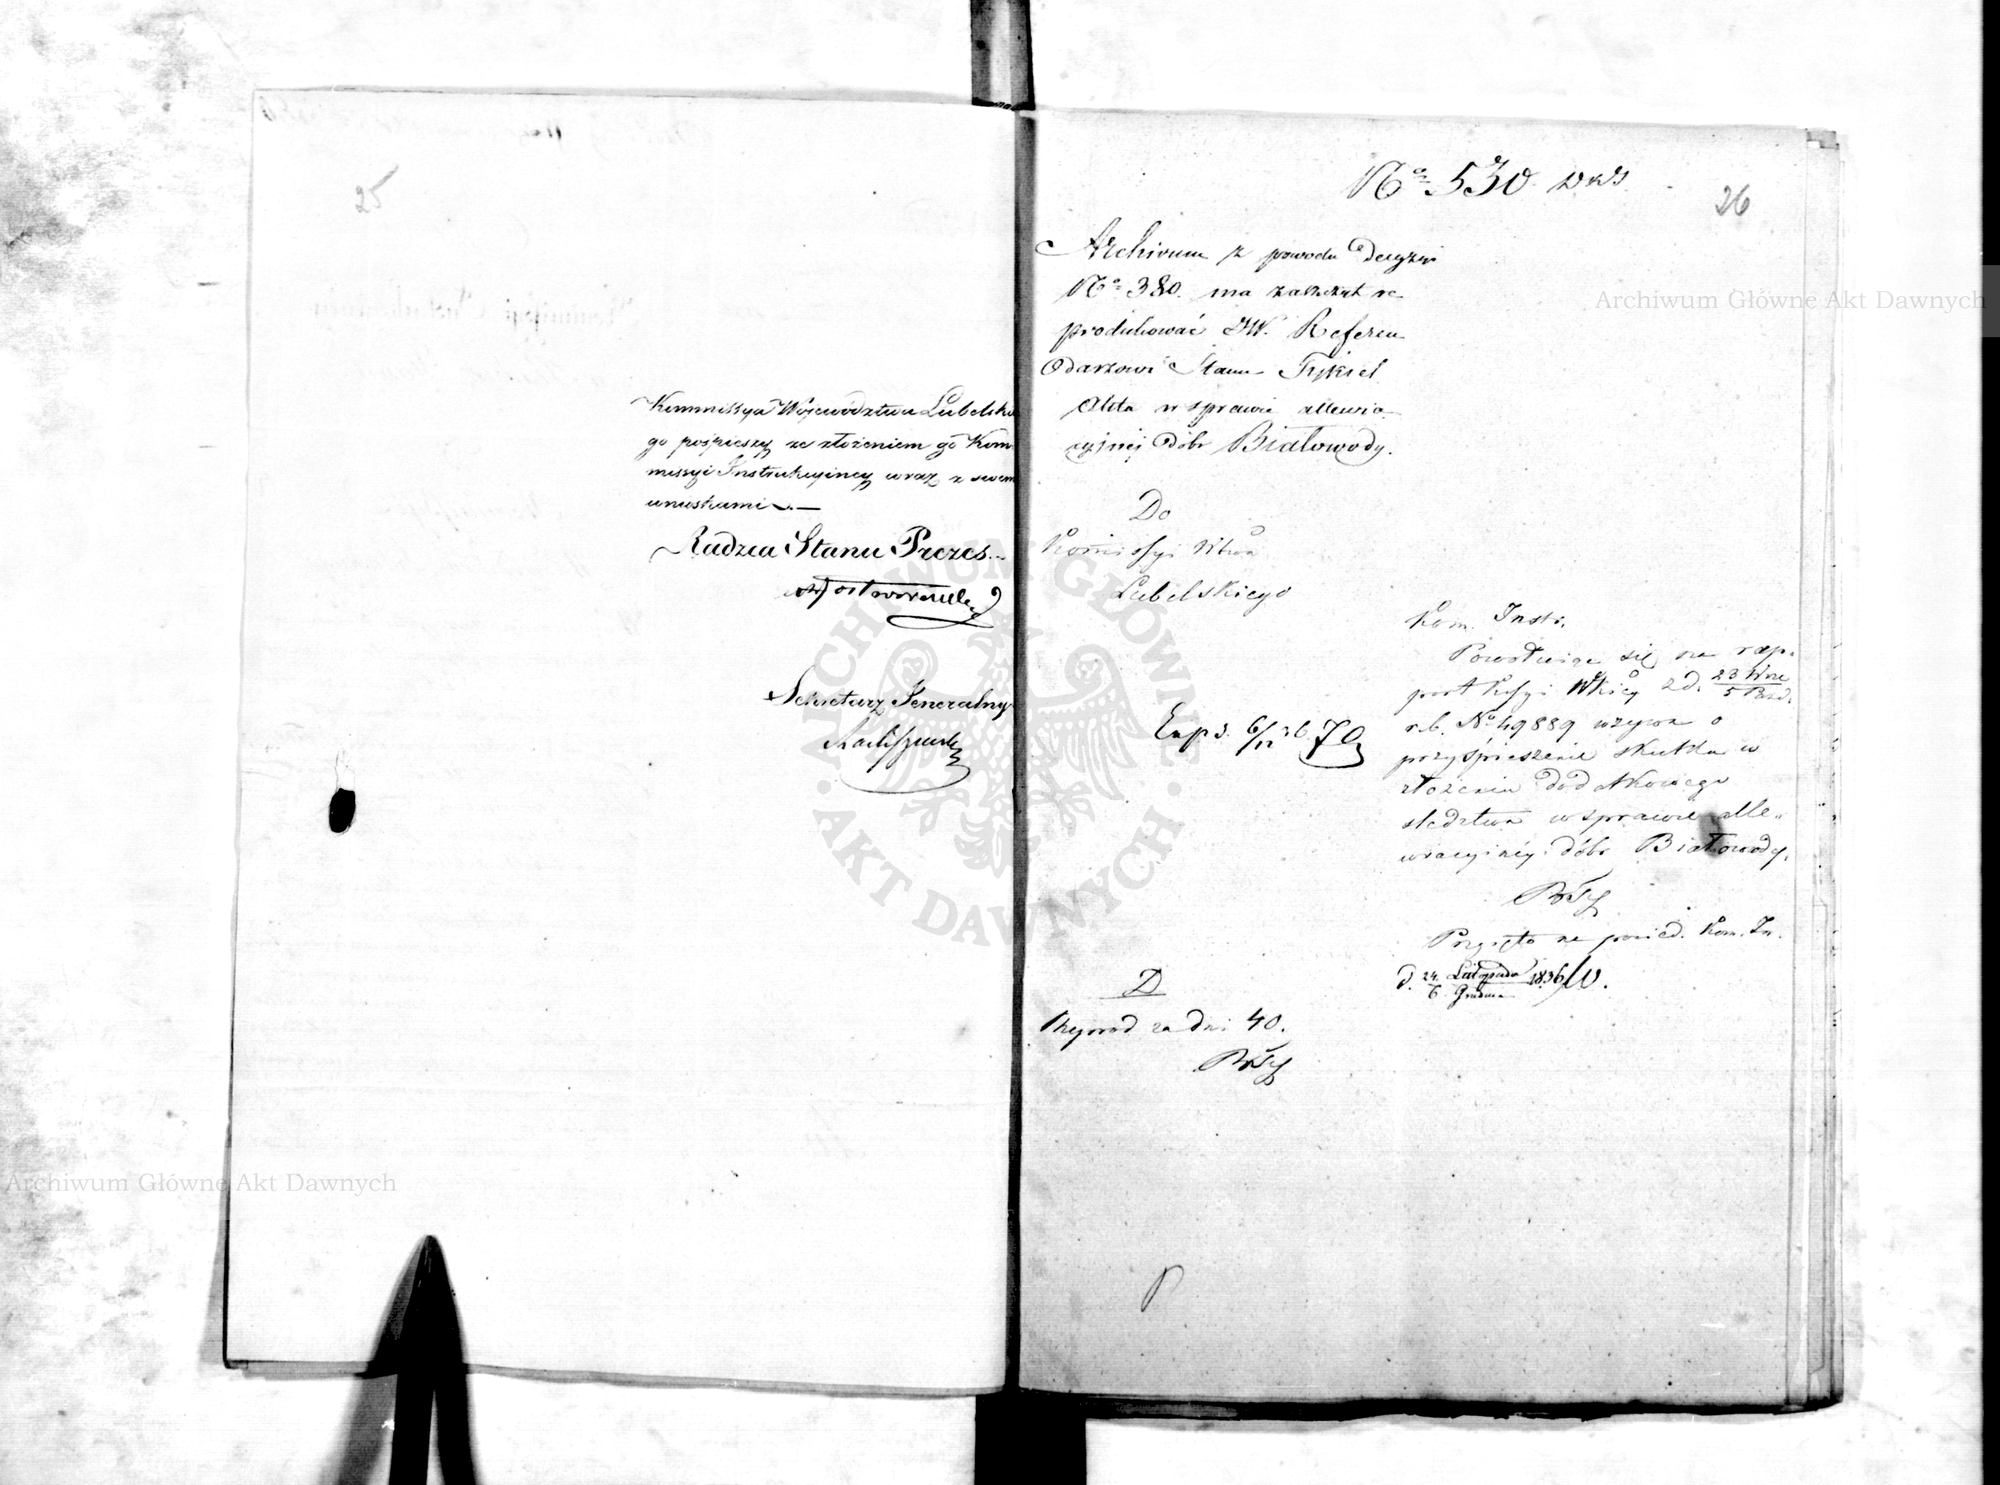 25
Kommissya Województwa Lubelskie
go pośpieszy ze złożeniem go Kom
missyi Instrukcyjney wraz z swem
wnioskami.—
Radzca Stanu Prezes.
Sekretarz Jeneralny
No 530
26
Archivum z powodu decyzyi
No 380. ma zaszczyt re
produkować JW. Referen
darzowi Stanu
Akta w sprawie allewia
cyjnéj dóbr Białowody.
Do
Kommissyi Wtwa
Lubelskiego
Kom. Instr.
Powołując się na rap-
port Kssyi Wkiey z d. 23 Wrze / 5 Paźd.
r.b. No 49889 wzywa o
przyśpieszenie skutku w
złożeniu dodatkowego
śledztwa w sprawie alle-
wiacyjnéy dóbr Białowody.
Exp. d. 6/12 36
Przyjęto na posied. Kom. In.
d. 24. Listopada / 6 Grudnia 1836
D
Reprod za dni 40.
P
Archiwum Główne Akt Dawnych
Archiwum Główne Akt Dawnych
ARCHIWUM GŁÓWNE
AKT DAWNYCH